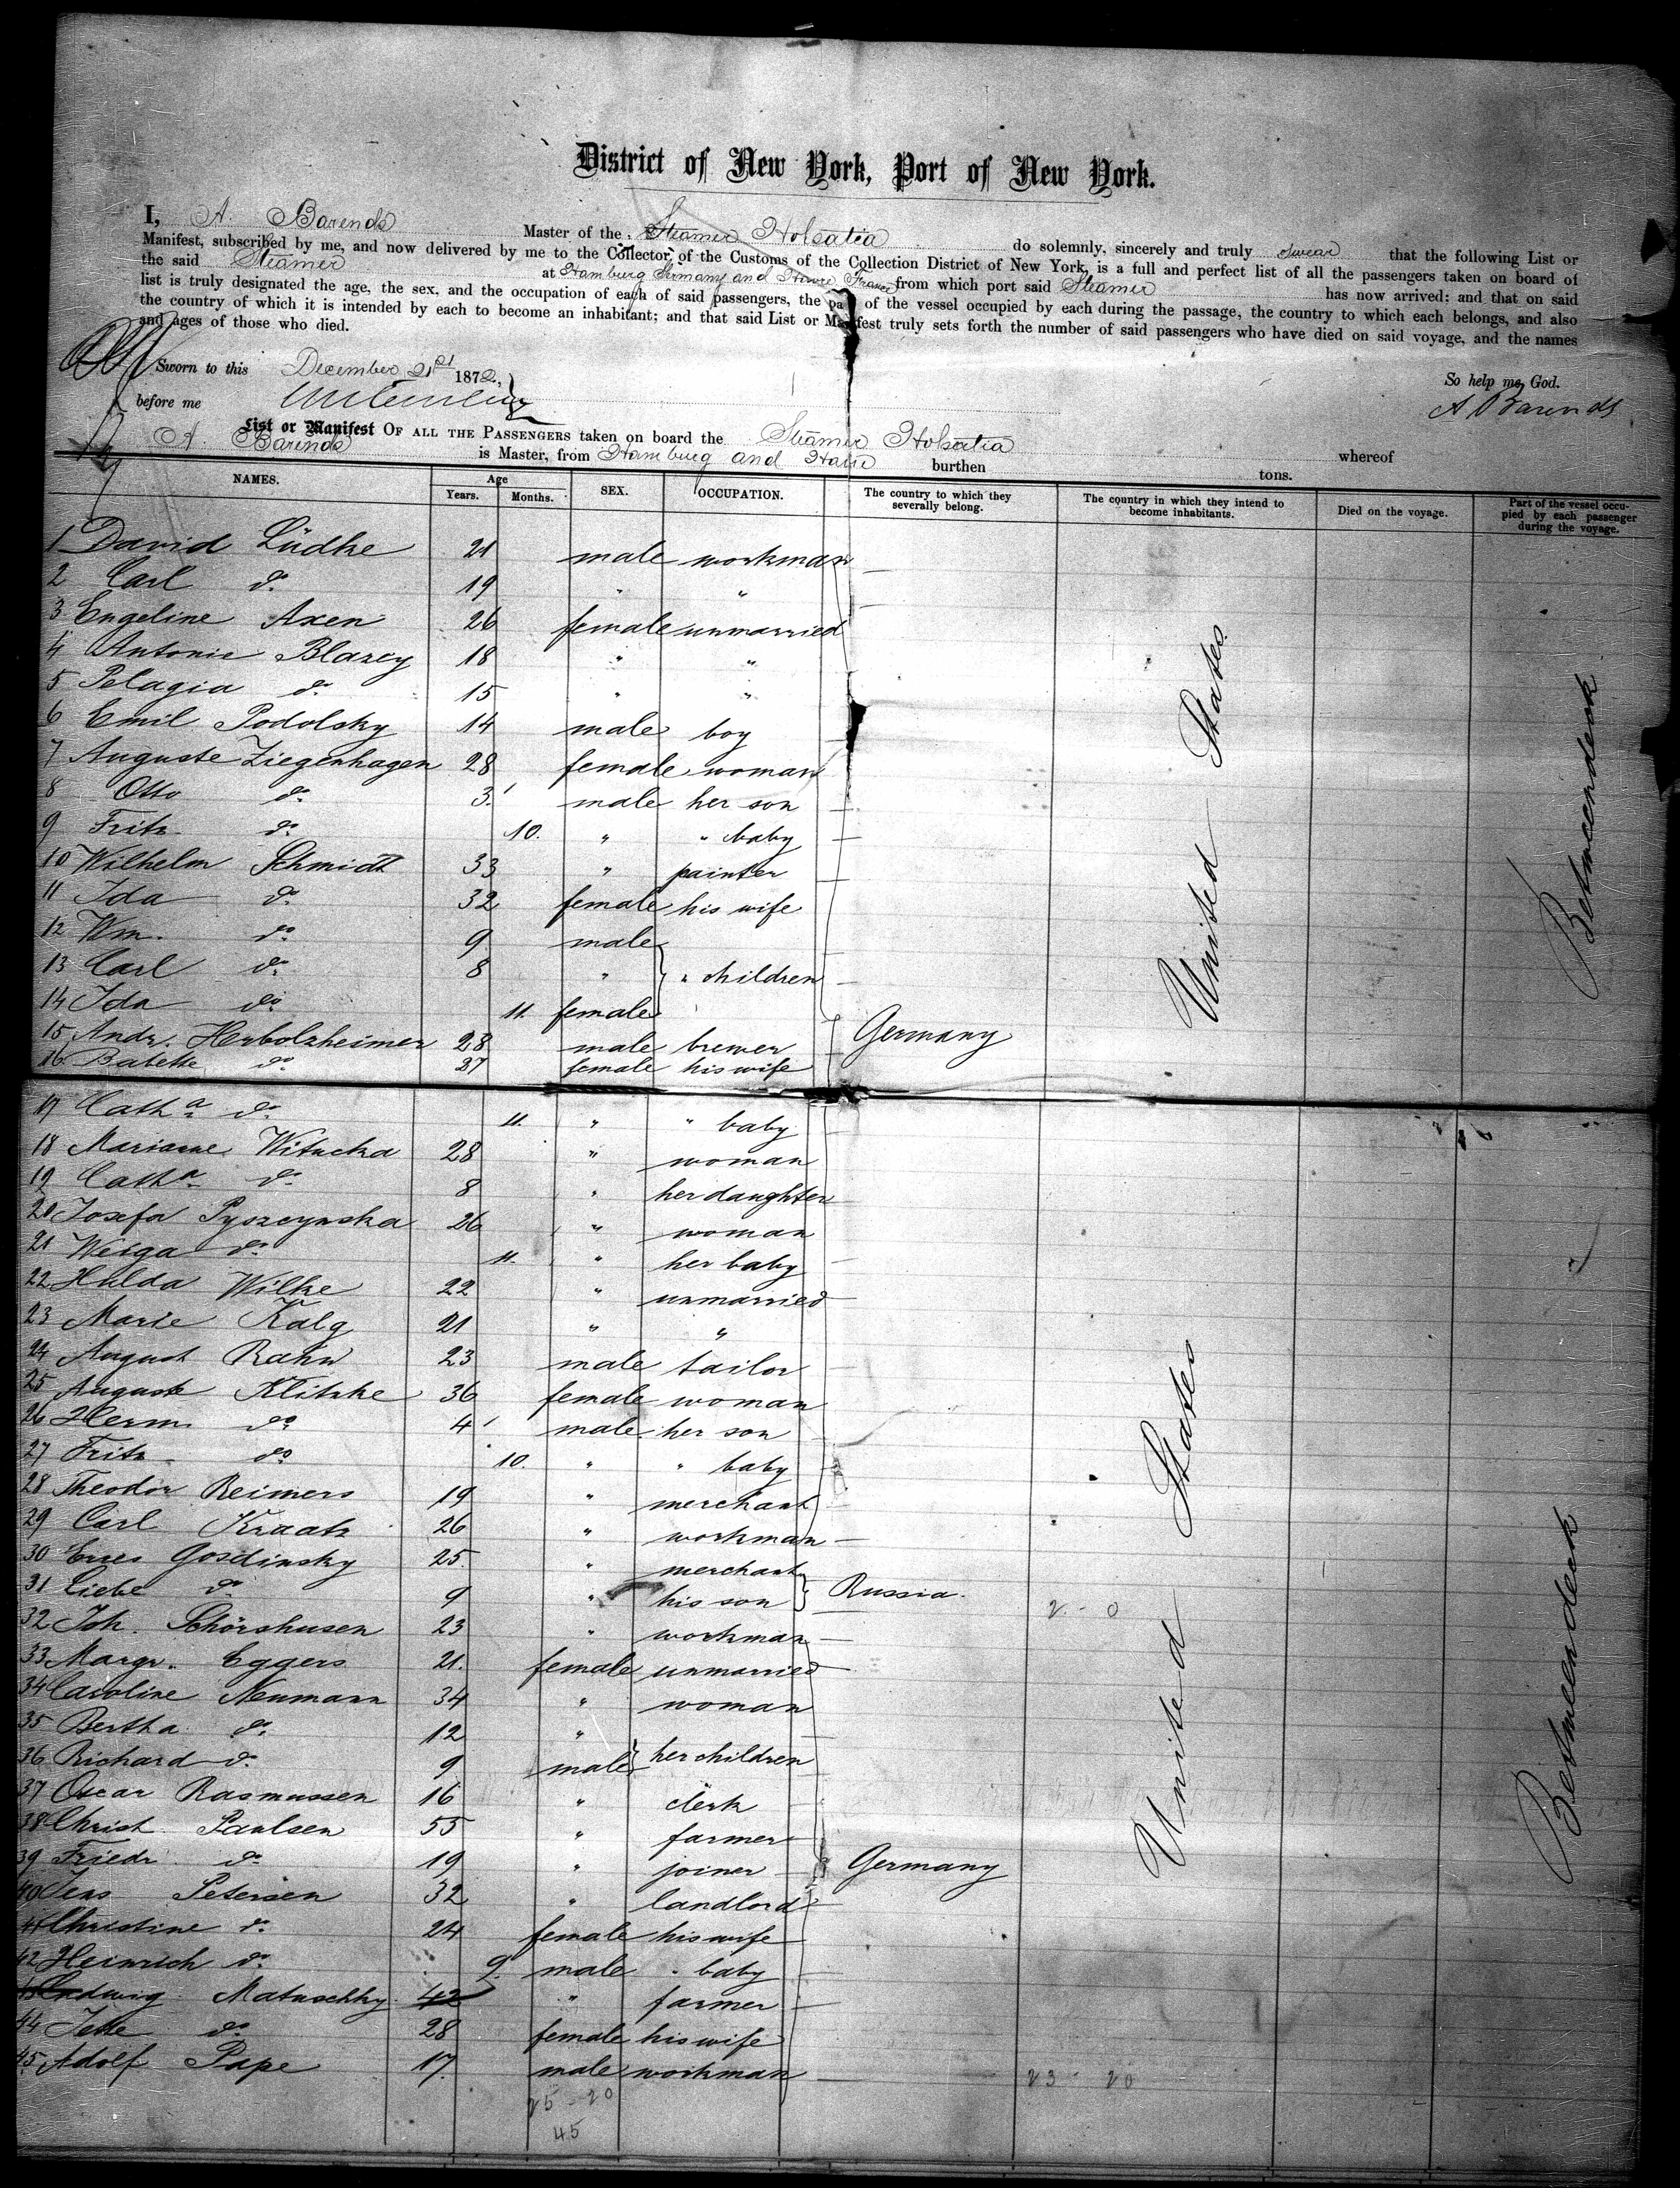 District of New York, Port of New York.
I, A. Barends Master of the Steamer Holsatia do solemnly, sincerely and truly swear that the following List or
Manifest, subscribed by me, and now delivered by me to the Collector of the Customs of the Collection District of New York, is a full and perfect list of all the passengers taken on board of
the said Steamer at Hamburg Germany and Havre France from which port said Steamer has now arrived: and that on said
list is truly designated the age, the sex, and the occupation of each of said passengers, the pa of the vessel occupied by each during the passage, the country to which each belongs, and also
the country of which it is intended by each to become an inhabitant; and that said List or Manifest truly sets forth the number of said passengers who have died on said voyage, and the names
and ages of those who died.
So help me God.
Sworn to this December 21st 1872,
A Barends
before me
List or Manifest OF ALL THE PASSENGERS taken on board the Steamer Holsatia whereof
A. Barends is Master, from Hamburg and Havre burthen tons.
NAMES. Age Years. Months. SEX. OCCUPATION. The country to which they severally belong. The country in which they intend to become inhabitants. Died on the voyage. Part of the vessel occupied by each passenger during the voyage.
1 David Lüdke 21 male workman
2 Carl do 19 " "
3 Engeline Axen 26 female unmarried
4 Antonie Blazey 18 " "
5 Pelagia do 15 " "
6 Emil Podolsky 14 male boy
7 Auguste Ziegenhagen 28 female woman
8 Otto do 3 male her son
9 Fritz do 10. " " baby
10 Wilhelm Schmidt 33 " painter
11 Ida do 32 female his wife
12 Wm. do 9 male
13 Carl do 8 " " children
14 Ida do 11. female
15 Andr. Herbolzheimer 28 male brewer Germany
16 Babette do 27 female his wife
United States
Betweendeck
17 Catha do 11. " " baby
18 Marianne Witucka 28 " woman
19 Catha do 8 " her daughter
20 Josefa Pyszcynska 26 " woman
21 Weiga do 11. " her baby
22 Hulda Wilke 22 " unmarried
23 Marie Kalg 21 " "
24 August Rahn 23 male tailor
25 Auguste Klitzke 36 female woman
26 Herm do 4 male her son
27 Fritz do 10. " " baby
28 Theodor Reimers 19 " merchant
29 Carl Kraatz 26 " workman
30 Erres Gosdinsky 25 " merchant
31 Liebe do 9 " his son Russia.
2 - 0
32 Joh. Schörshusen 23 " workman
33 Margr. Eggers 21. female unmarried
34 Caroline Neumann 34 " woman
35 Bertha do 12 "
36 Richard do 9 male her children
37 Oscar Rasmussen 16 " clerk
38 Christ. Paulsen 55 " farmer
39 Friedr do 19 " joiner Germany
40 Jens Petersen 32 " landlord
41 Christine do 24 female his wife
42 Heinrich do 9. male " baby
43 Ludwig Matuschky 42 " farmer
44 Jette do 28 female his wife
45 Adolf Pape 17. male workman
23 - 20
25 - 20
45
United States
Betweendeck